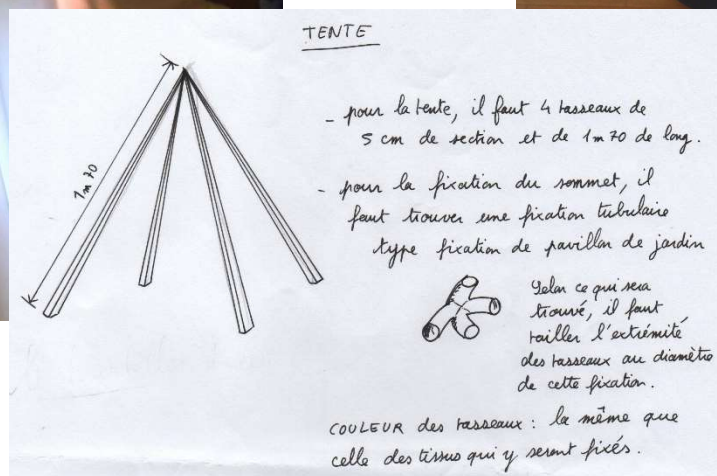 TENTE
- pour la tente, il faut 4 tasseaux de
5 cm de section et de 1m70 de long.
- pour la fixation du sommet, il
faut trouver une fixation tubulaire
type fixation de pavillon de jardin
1m70
Selon ce qui sera
trouvé, il faut
tailler l'extrémité
des tasseaux au diamètre
de cette fixation.
COULEUR des tasseaux : la même que
celle des tissus qui y seront fixés.